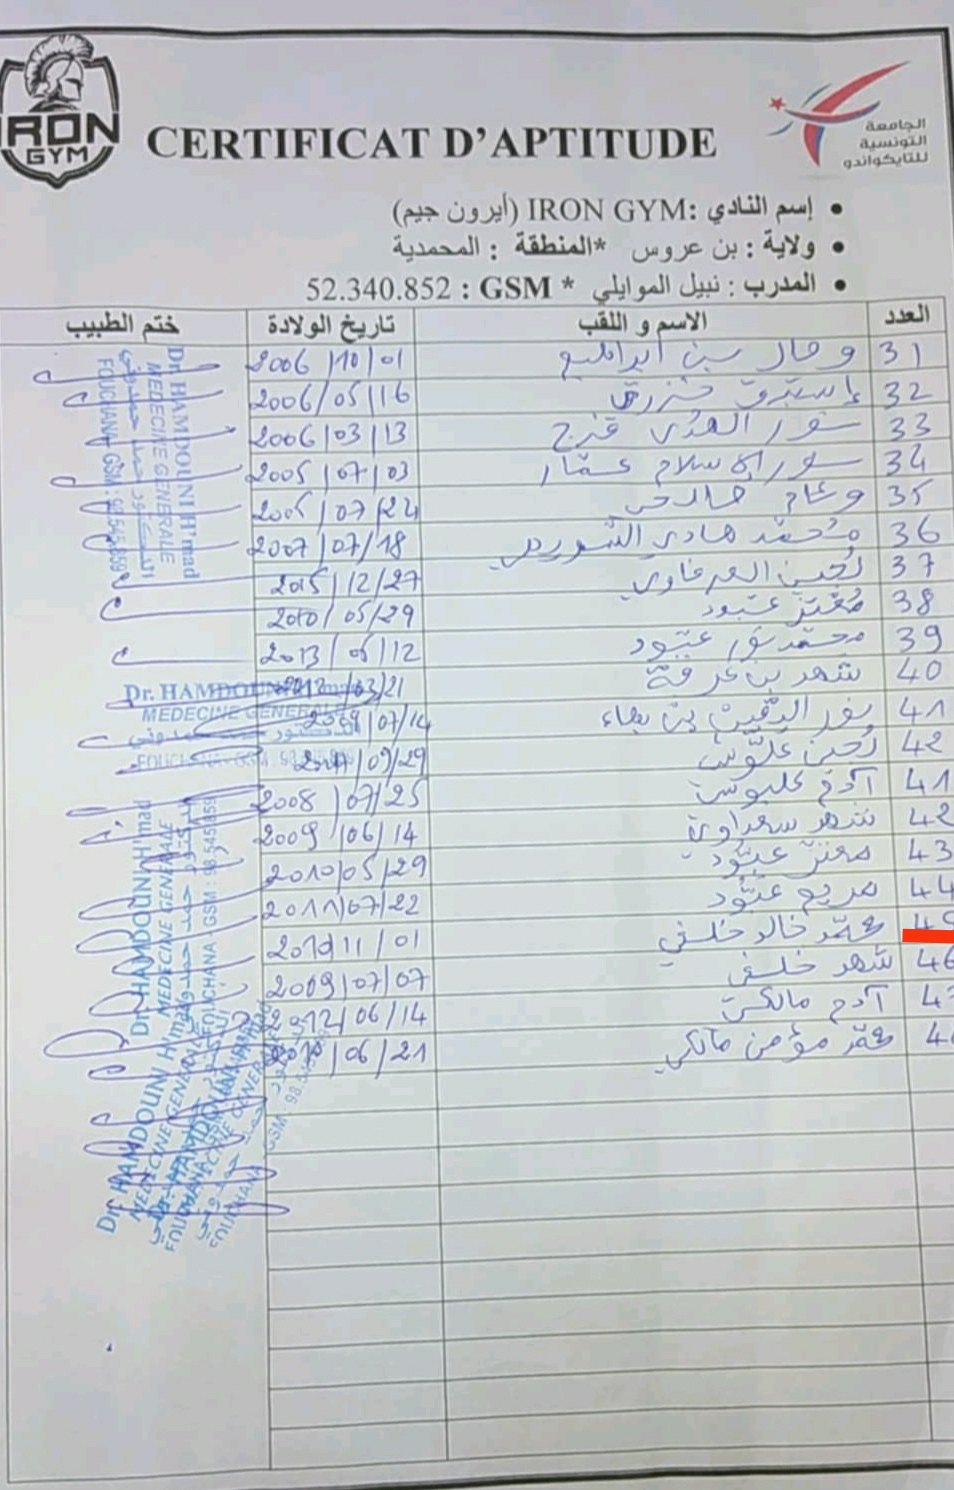 IRON
GYM
CERTIFICAT D'APTITUDE
الجامعة
التونسية
للتايكواندو
• إسم النادي :IRON GYM (أيرون جيم)
• ولاية : بن عروس *المنطقة : المحمدية
• المدرب : نبيل الموايلي * GSM : 52.340.852
العدد الاسم و اللقب تاريخ الولادة ختم الطبيب
31 بن 2006/10/01
32 2006/05/16
33 نور الهدى فرج 2006/03/13
34 نور الإسلام عمّار 2005/07/03
35 2005/07/24
36 محمّد هادي 2007/07/18
37 لجين العرفاوي 2015/12/27
38 مُعتز عبّود 2010/05/29
39 محمّد نور عبّود 2013/05/12
40 شهد بن عرفة /03/21
41 نور اليقين بن /07/14
42 لُجين علّوش /09/29
41 آدم 2008/07/25
42 شهد سعداوي 2009/06/14
43 معتز عبّود 2010/05/29
44 مريم عبّود 2011/07/22
محمّد خالد خلفي 2010/11/01
46 شهد خلفي 2009/07/07
آدم مالكي 2012/06/14
محمّد مؤمن مالكي /06/21
Dr. HAMDOUNI H'mad
MEDECINE GENERALE
الدكتور حمد حمدوني
FOUCHANA - GSM : 98.545.859
Dr. HAMDOUNI
MEDECINE GENERALE
FOUCHANA - GSM : 98
Dr. HAMDOUNI H'mad
MEDECINE GENERALE
الدكتور حمد حمدوني
FOUCHANA - GSM : 98.545.859
Dr. HAMDOUNI H'mad
MEDECINE GENERALE
FOUCHANA